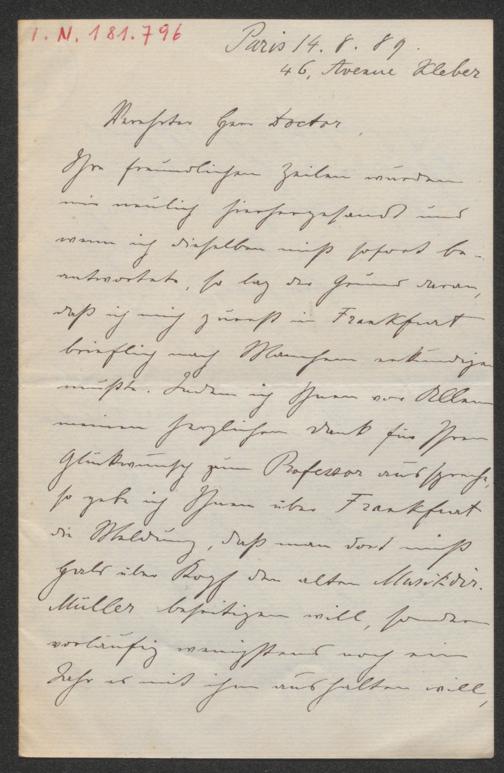 I. N. 181.796
Paris 14. 8. 89.
46, Avenue Kleber
Verehrter Herr Doctor,
Ihre freundlichen Zeilen wurden
mir neulich hierhergesandt und
wenn ich dieselben nicht sofort be-
antwortete, so lag der Grund daran,
daß ich mich zuerst in Frankfurt
brieflich nach Manchem erkundigen
mußte. Indem ich Ihnen vor Allem
meinen herzlichen Dank für Ihren
Glückwunsch zum Professor ausspreche,
so gebe ich Ihnen über Frankfurt
die Meldung, daß man dort nicht
Hals über Kopf den alten Musikdir.
Müller beseitigen will, sondern
vorläufig wenigstens noch ein
Jahr es mit ihm aushalten will,